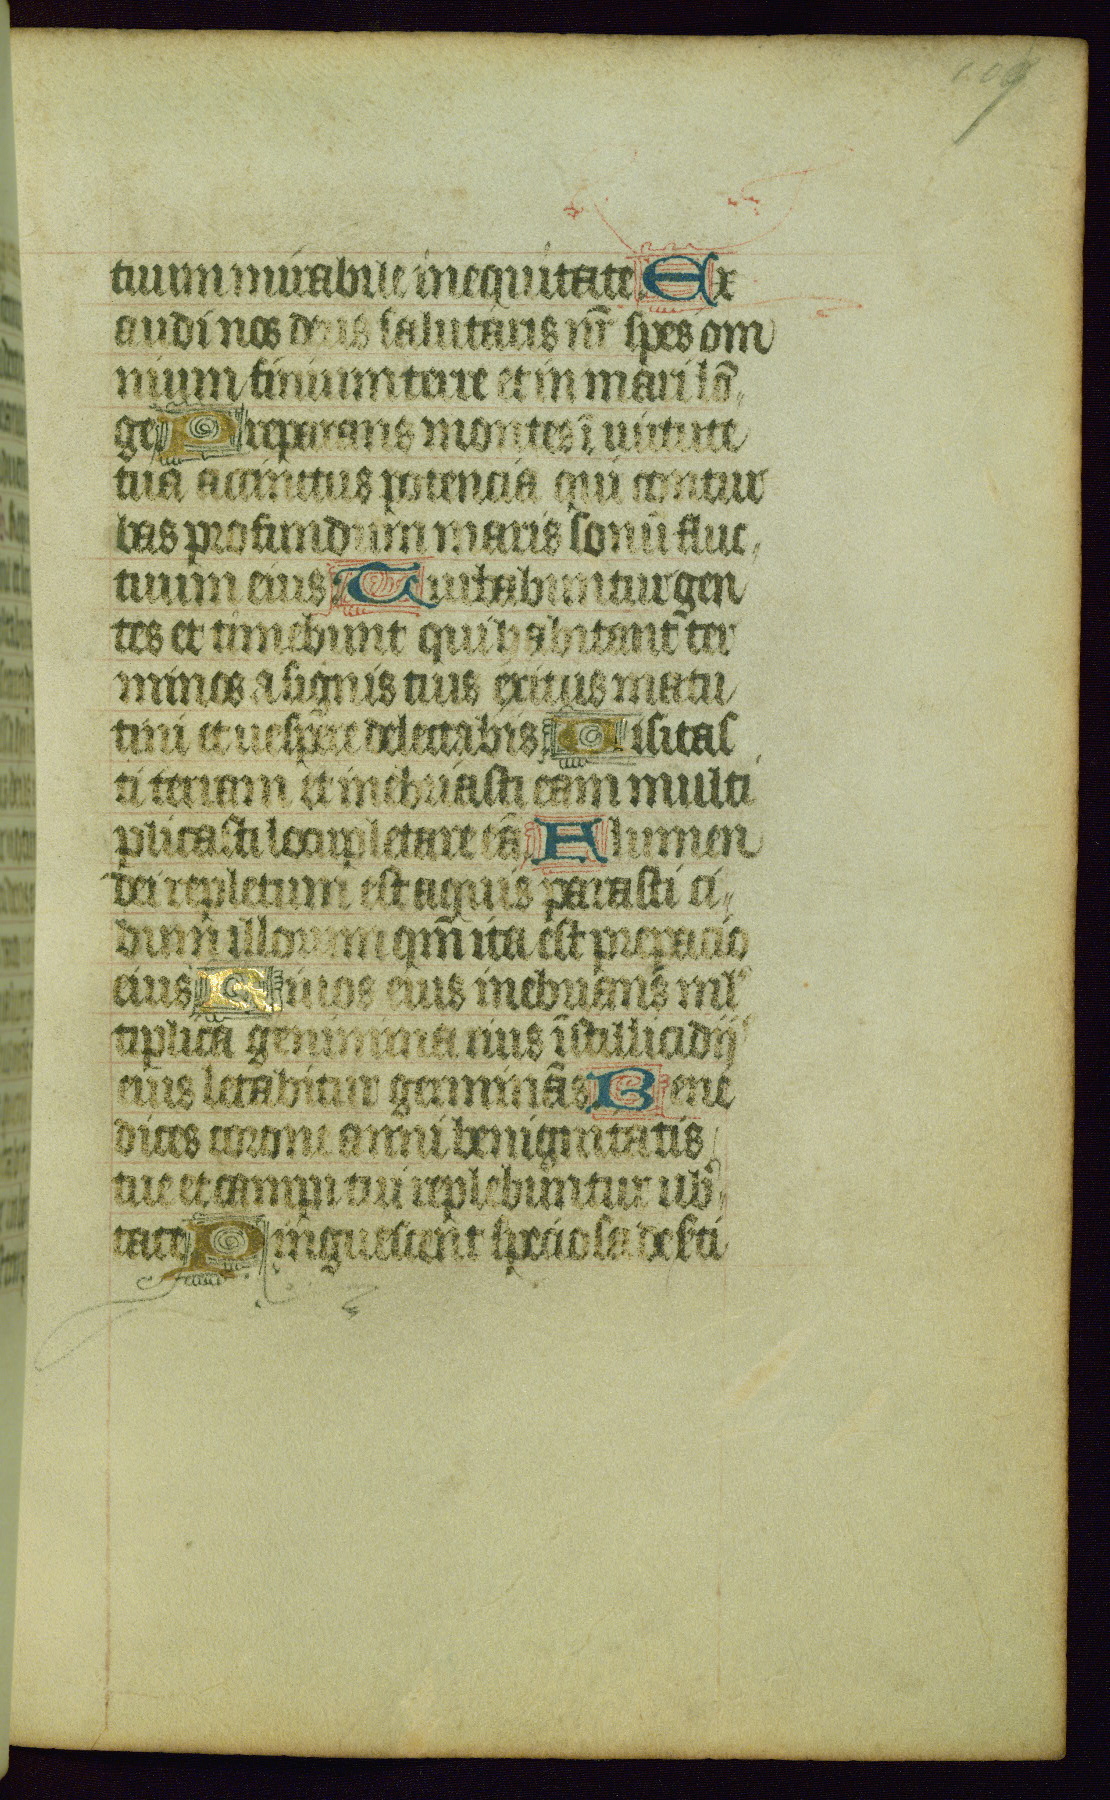 109
tuum mirabile in equitate Ex
audi nos deus salutaris nr̄ spes om
nium finium terre et in mari lō
ge Preparans montes ī uirtute
tua accinctus potencia qui contur
bas profundum maris sonū fluc
tuum eius Turbabuntur gen
tes et timebunt qui habitant ter
minos a signis tuis exitus matu
tini et uespere delectabis Uisitas
ti terram et inebriasti eam multi
plicasti locupletare eā Flumen
dei repletum est aquis parasti ci
bum illorum qm̄ ita est prepacio
eius Riuos eius inebrians mul
tiplica genimina eius ī stillicidijs
eius letabitur germinās Bene
dices corone anni benignitatis
tue et campi tui replebuntur ub
tate Pinguescent speciosa deserti